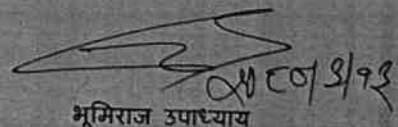 २०८०/३/१३
भूमिराज उपाध्याय